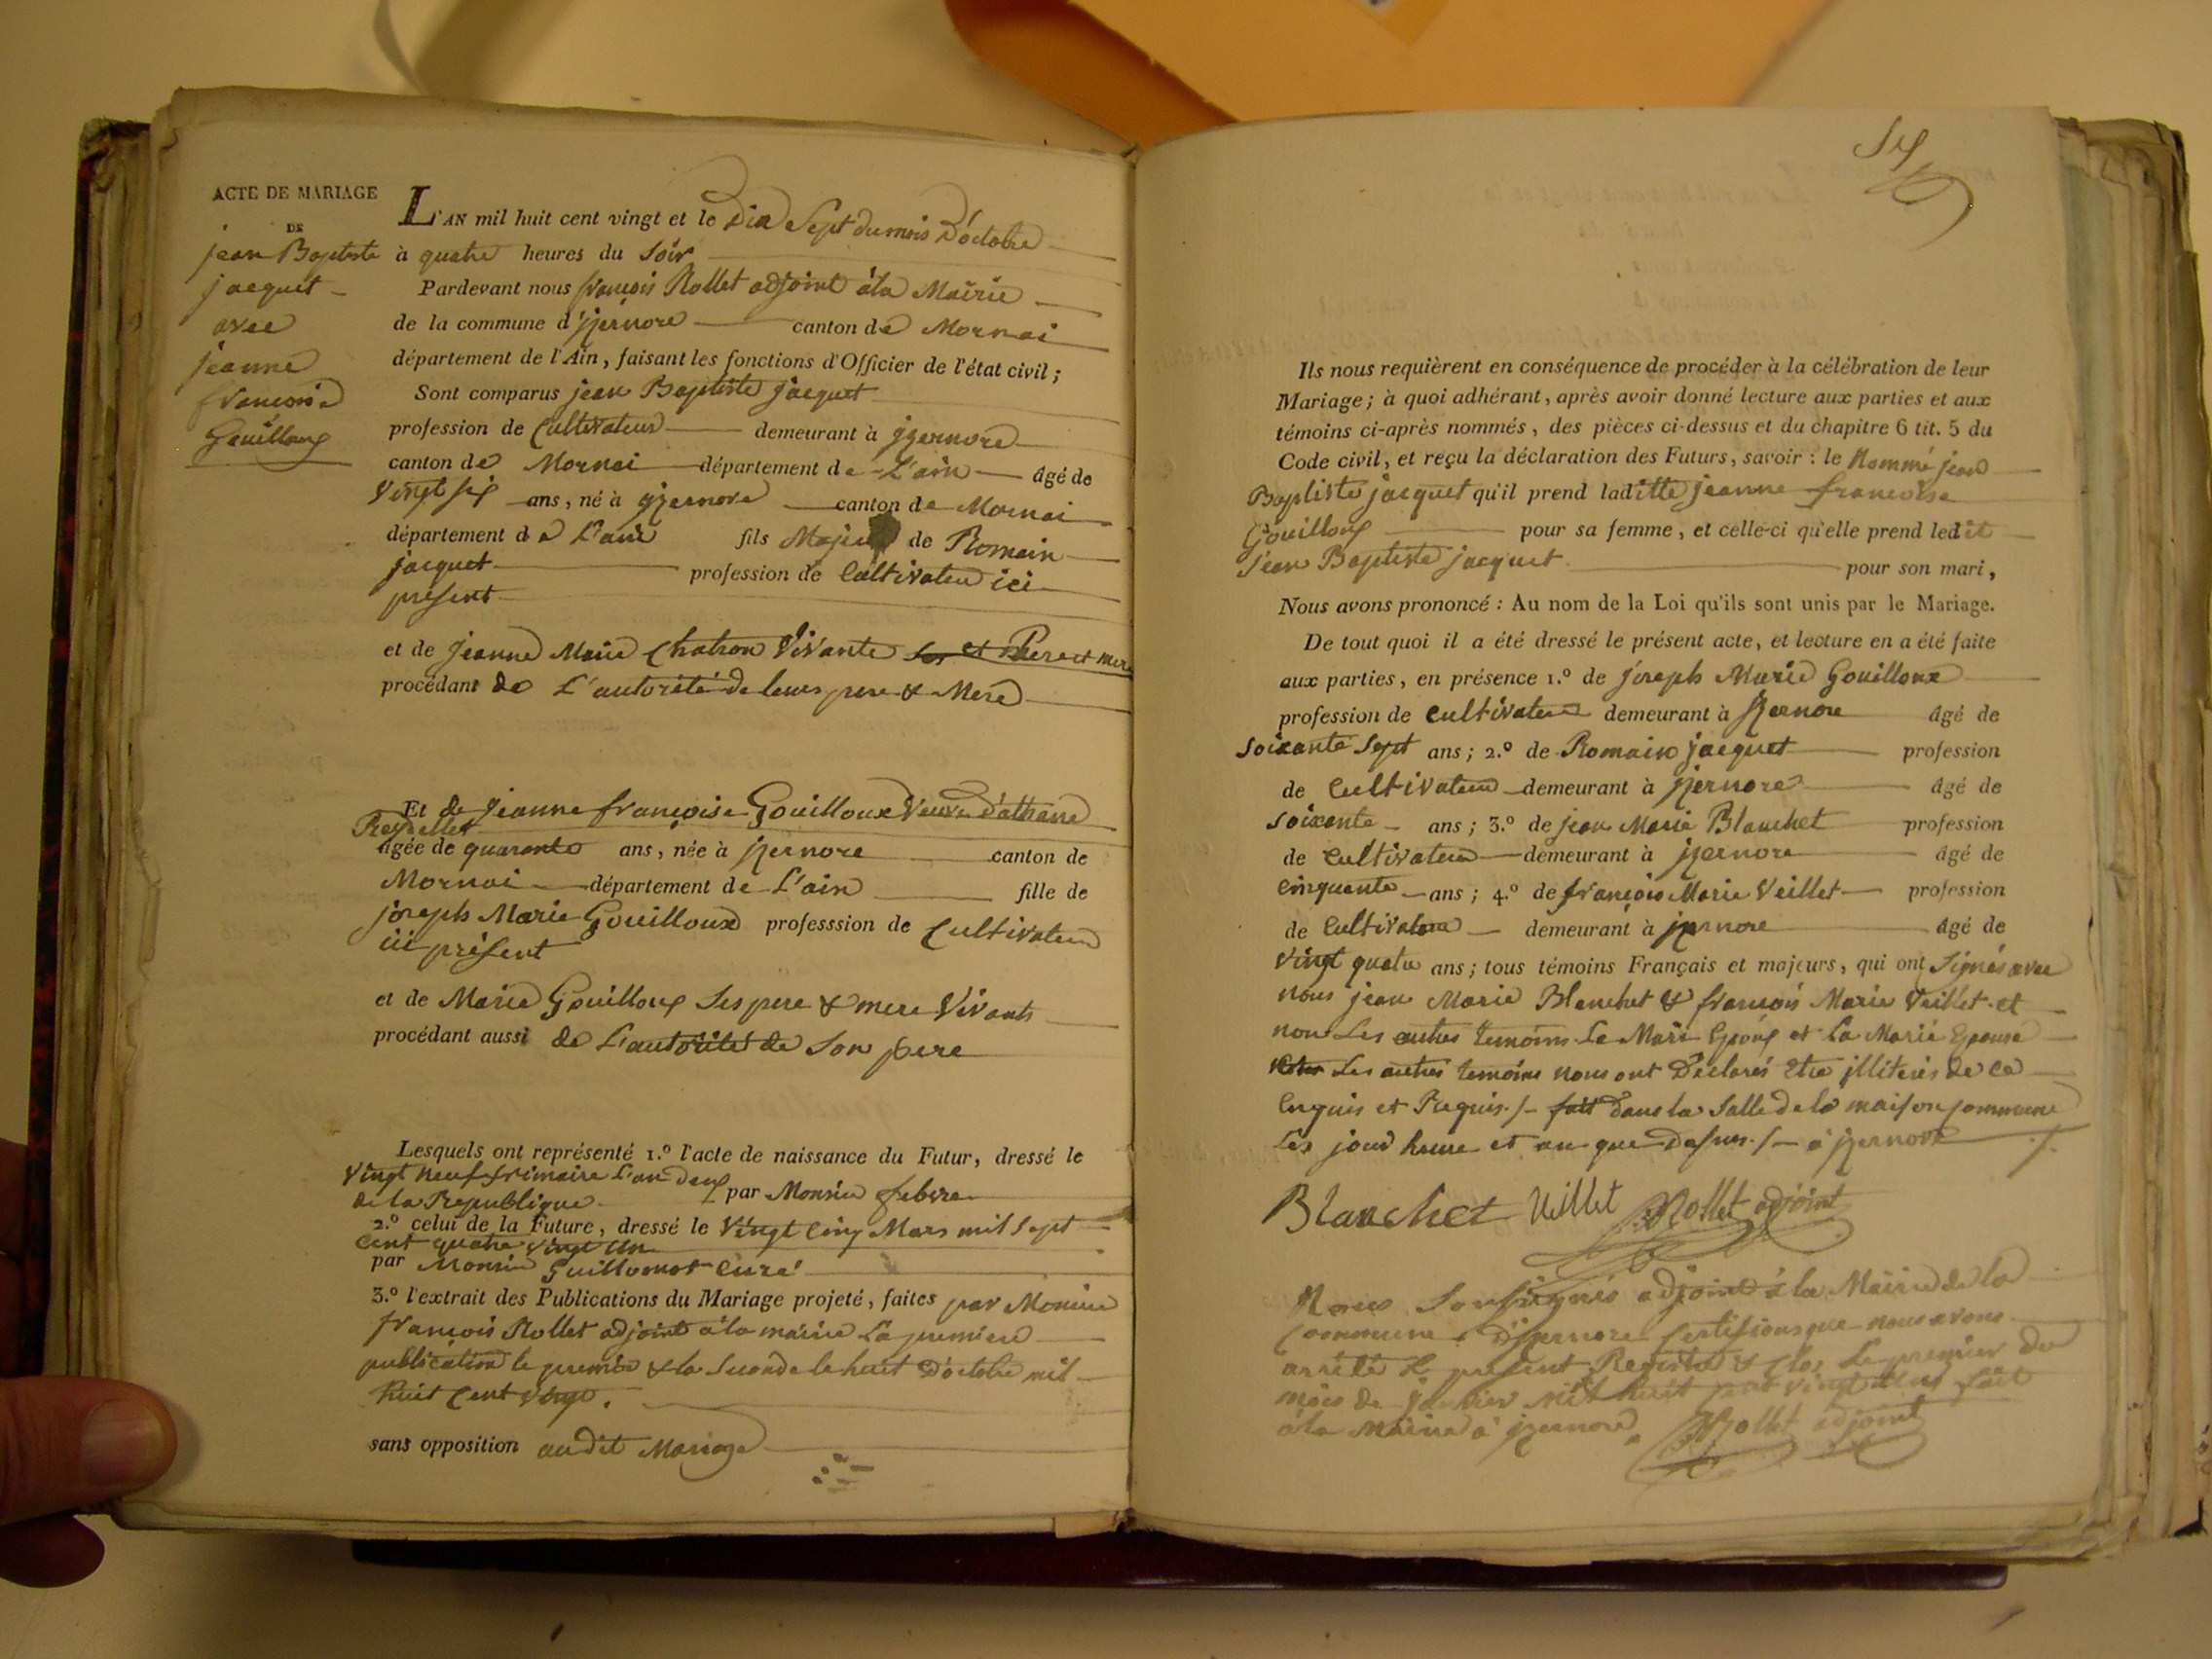 ACTE DE MARIAGE
DE
jean Baptiste
jacquet
avec
jeanne
francoise
Gouilloux
L'AN mil huit cent vingt et le Dix Sept du mois D'octobre
à quatre heures du Soir
Pardevant nous françois Rollet adjoint à la Mairie
de la commune d'jzernore canton de Mornai
département de l'Ain, faisant les fonctions d'Officier de l'état civil;
Sont comparus jean Baptiste jacquet
profession de Cultivateur demeurant à jzernore
canton de Mornai département de L'ain âgé de
vingt six ans, né à jzernore canton de Mornai
département de L'ain fils Majeur de Romain
jacquet profession de Cultivateur ici
présent
et de jeanne Marie Chatron Vivante et Pere et mere
procédant de L'autorité de leurs pere & Mere
Et de jeanne françoise Gouilloux Veuve d'athanase
Reydellet
âgée de quarante ans, née à jzernore canton de
Mornai département de L'ain fille de
joseph Marie Gouilloux professsion de Cultivateur
ici présent
et de Marie Gouilloux Ses pere & mere Vivants
procédant aussi de L'autorité de Son pere
Lesquels ont représenté 1.º l'acte de naissance du Futur, dressé le
Vingt neuf frimaire L'an deux
de la Republique par Monsieur
2.º celui de la Future, dressé le Vingt Cinq Mars mil Sept
Cent quatre vingt un
par Monsieur Guillomot Curé
3.º l'extrait des Publications du Mariage projeté, faites par Monsieur
françois Rollet adjoint à la mairie La premiere
publication le premier & la Seconde le huit D'octobre mil
huit Cent vingt.
sans opposition audit Mariage
Ils nous requièrent en conséquence de procéder à la célébration de leur
Mariage; à quoi adhérant, après avoir donné lecture aux parties et aux
témoins ci-après nommés, des pièces ci-dessus et du chapitre 6 tit. 5 du
Code civil, et reçu la déclaration des Futurs, savoir : le Nommé jean
Baptiste jacquet qu'il prend laditte jeanne francoise
Gouilloux pour sa femme, et celle-ci qu'elle prend ledit
jean Baptiste jacquet pour son mari,
Nous avons prononcé : Au nom de la Loi qu'ils sont unis par le Mariage.
De tout quoi il a été dressé le présent acte, et lecture en a été faite
aux parties, en présence 1.º de joseph Marie Gouilloux
profession de Cultivateur demeurant à jzernore âgé de
Soixante Sept ans; 2.º de Romain jacquet profession
de Cultivateur demeurant à jzernore âgé de
Soixante ans; 3.º de jean Marie Blanchet profession
de Cultivateur demeurant à jzernore âgé de
Cinquante ans; 4.º de françois Marie Veillet profession
de Cultivateur demeurant à jzernore âgé de
Vingt quatre ans; tous témoins Français et majeurs, qui ont Signés avec
nous jean Marie Blanchet & francois Marie Veillet et
non Les autres temoins Le Mari Epoux et La Mariée Epouse
Les autres temoins nous ont Déclarés Etre illiterés de ce
Enquis et Requis./ fait Dans la Salle de la maison Commune
Les jour heure et an que Dessus./ à jzernore
Blanchet Veillet Rollet adjoint
Nous Soussignés adjoint à la Mairie de la
Commune D'jzernore Certifions que nous avons
arrêté Le présent Registre & Clos Le premier du
mois de janvier mil huit Cent vingt un fait
à la mairie à jzernore Rollet adjoint